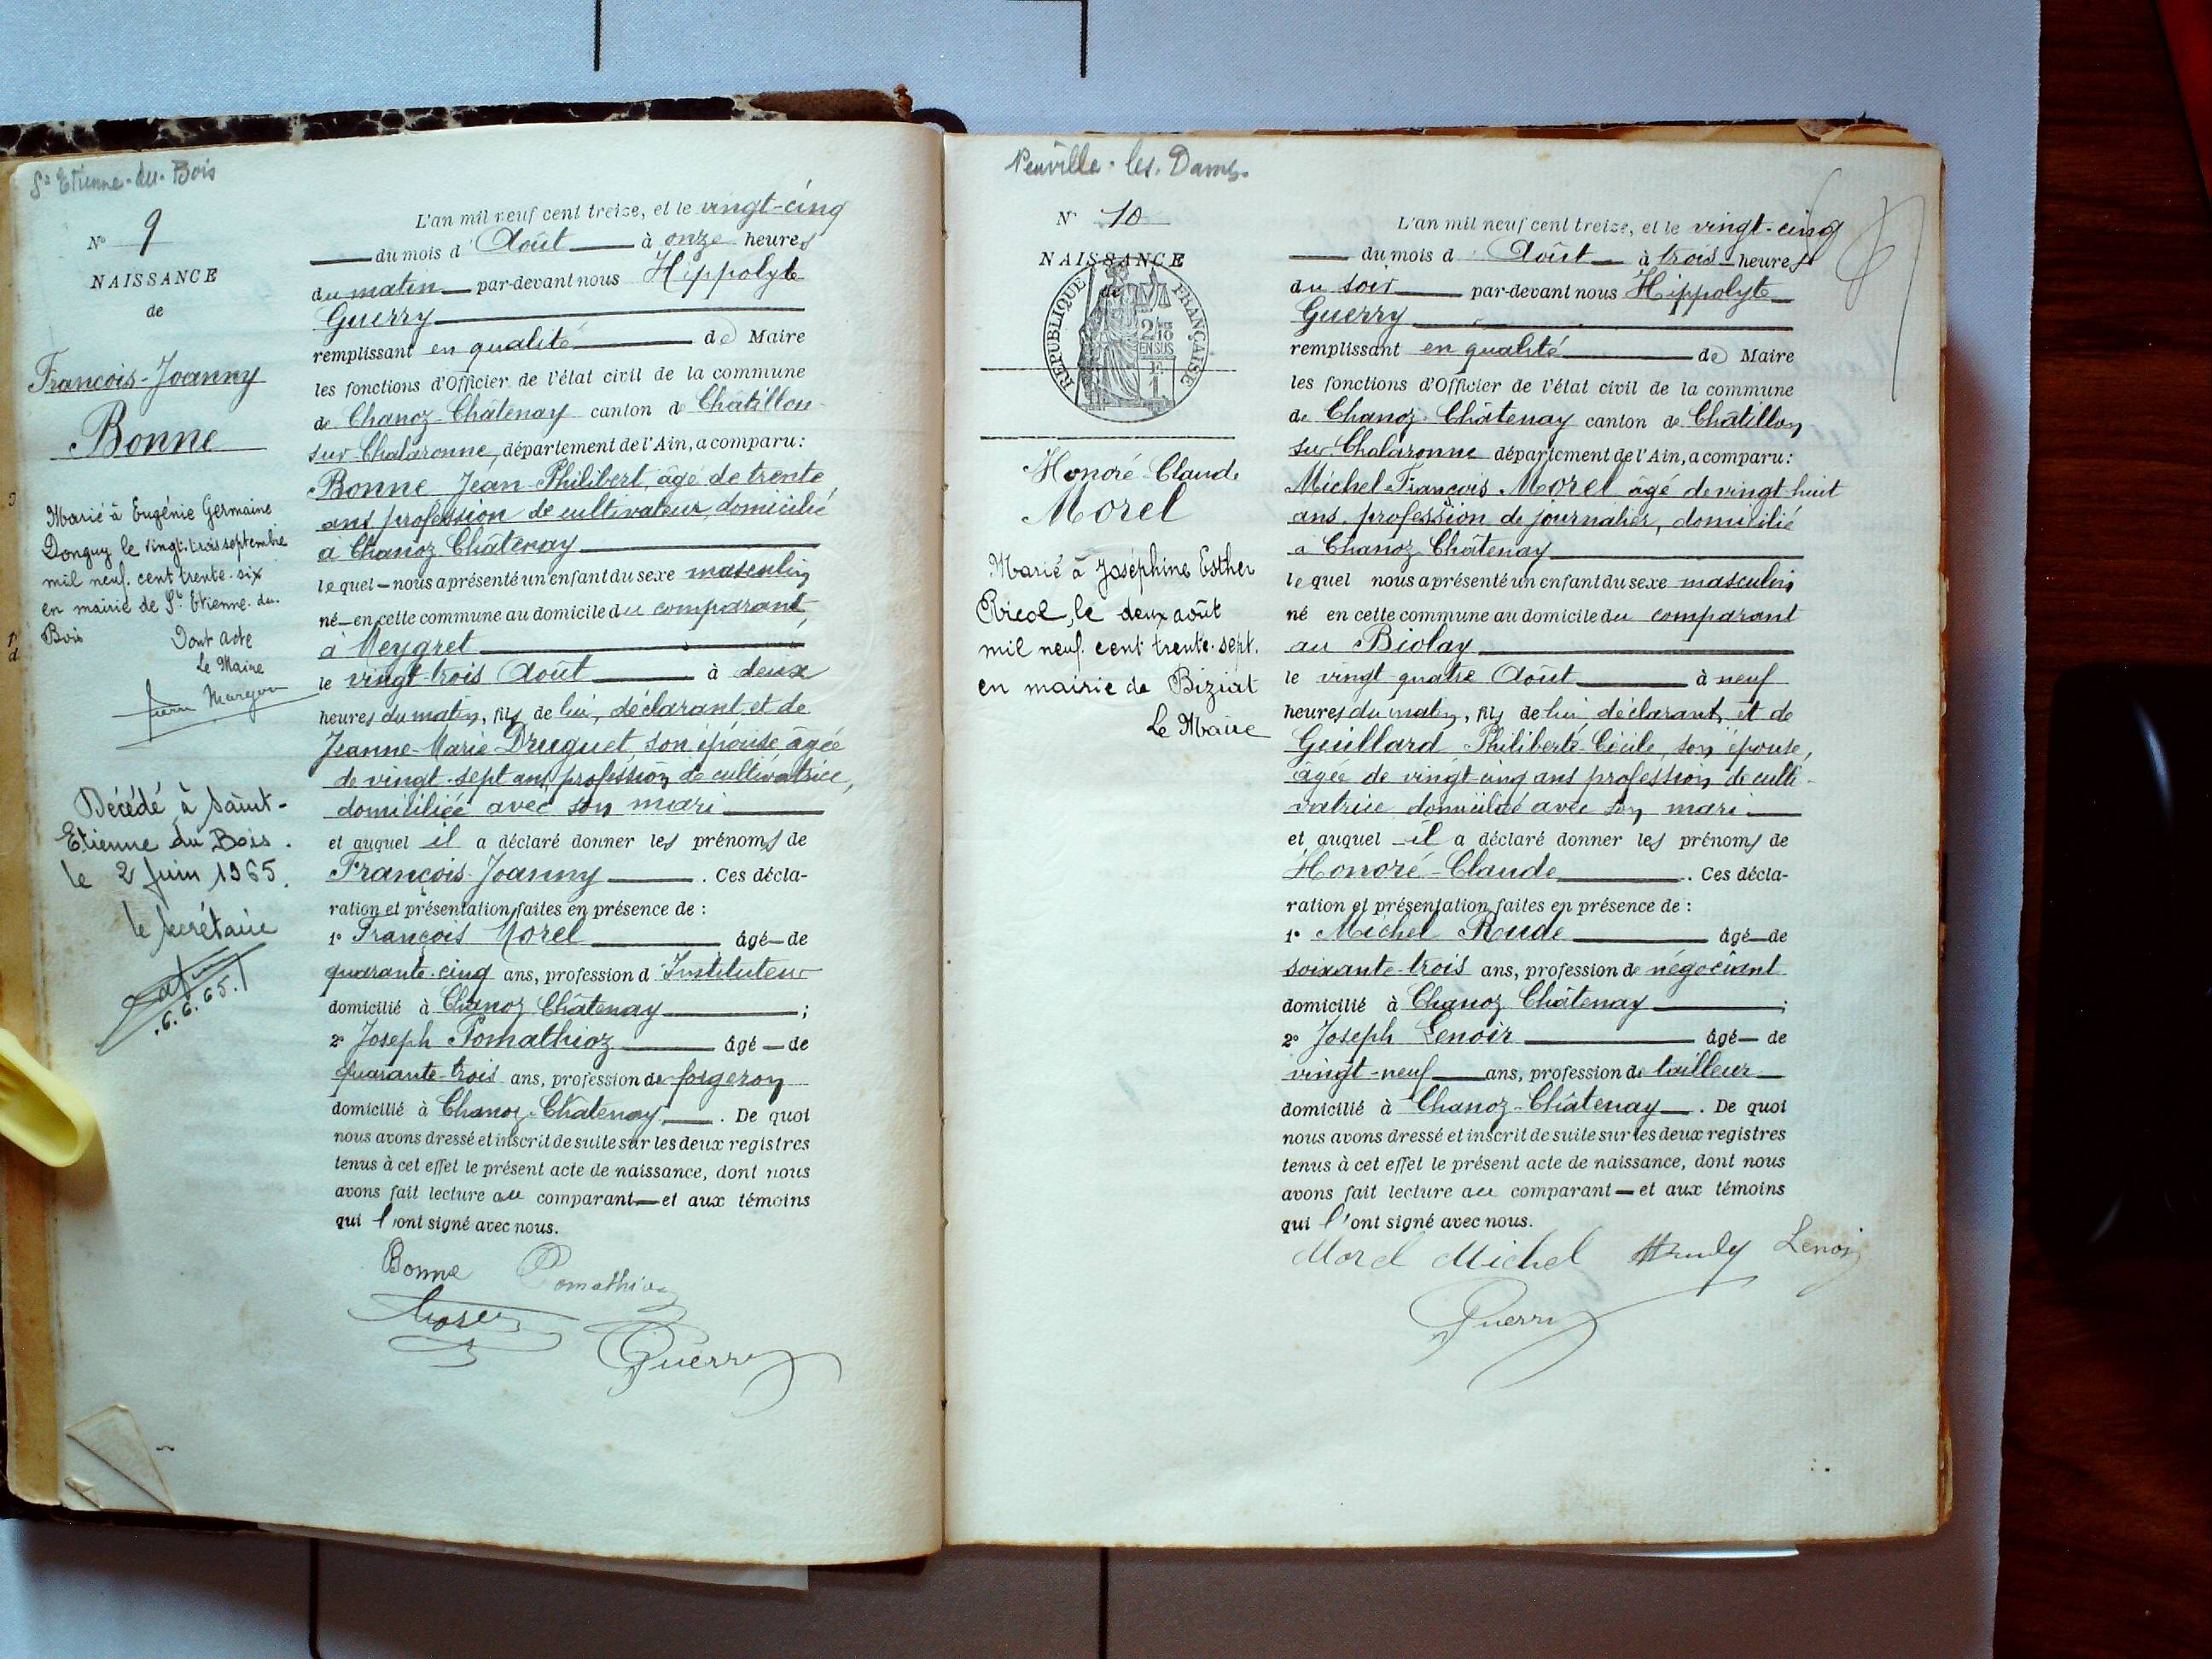 St Etienne-du-Bois
N° 9
NAISSANCE
de
François-Joanny
Bonne
Marié à Eugénie Germaine
Donguy le vingt-trois septembre
mil neuf cent trente-six
en mairie de St Etienne-du-
Bois
Dont acte
Le Maire
Décédé à Saint-
Etienne du Bois.
le 2 Juin 1965.
le secrétaire
6.6.65.
L'an mil neuf cent treize, et le vingt-cinq
du mois d'Août à onze heures
du matin par-devant nous Hippolyte
Guerry
remplissant en qualité de Maire
les fonctions d'Officier de l'état civil de la commune
de Chanoz-Châtenay canton de Châtillon-
sur Chalaronne, département de l'Ain, a comparu:
Bonne Jean-Philibert, âgé de trente
ans profession de cultivateur, domicilié
à Chanoz-Châtenay
lequel nous a présenté un enfant du sexe masculin
né en cette commune au domicile du comparant,
à Meygret
le vingt-trois Août à deux
heures du matin, fils de lui, déclarant et de
Jeanne-Marie Druguet son épouse âgée
de vingt-sept ans, profession de cultivatrice,
domiciliée avec son mari
et auquel il a déclaré donner les prénoms de
François-Joanny. Ces décla-
ration et présentation faites en présence de :
1° François Morel âgé de
quarante-cinq ans, profession d'Instituteur
domicilié à Chanoz Châtenay ;
2° Joseph Pomathioz âgé de
quarante-trois ans, profession de forgeron
domicilié à Chanoz-Châtenay. De quoi
nous avons dressé et inscrit de suite sur les deux registres
tenus à cet effet le présent acte de naissance, dont nous
avons fait lecture au comparant et aux témoins
qui l'ont signé avec nous.
Bonne Pomathioz
Guerry
Neuville-les-Dames
N° 10
NAISSANCE
de
RÉPUBLIQUE FRANÇAISE
EN SUS
Honoré-Claude
Morel
Marié à Joséphine Esther
Ricol, le deux août
mil neuf cent trente-sept.
en mairie de Biziat
Le Maire
L'an mil neuf cent treize, et le vingt-cinq
du mois d'Août à trois heures
du soir par-devant nous Hippolyte
Guerry
remplissant en qualité de Maire
les fonctions d'Officier de l'état civil de la commune
de Chanoz-Châtenay canton de Châtillon
sur Chalaronne département de l'Ain, a comparu:
Michel-François Morel âgé de vingt huit
ans, profession de journalier, domicilié
à Chanoz-Châtenay
lequel nous a présenté un enfant du sexe masculin
né en cette commune au domicile du comparant
au Biolay
le vingt quatre Août à neuf
heures du matin, fils de lui déclarant, et de
Guillard Philiberte-Cécile, son épouse,
âgée de vingt-cinq ans profession de culti-
vatrice domiciliée avec son mari
et auquel il a déclaré donner les prénoms de
Honoré-Claude. Ces décla-
ration et présentation faites en présence de :
1° Michel Rude âgé de
soixante-trois ans, profession de négociant
domicilié à Chanoz Châtenay ;
2° Joseph Lenoir âgé de
vingt-neuf ans, profession de tailleur
domicilié à Chanoz-Châtenay. De quoi
nous avons dressé et inscrit de suite sur les deux registres
tenus à cet effet le présent acte de naissance, dont nous
avons fait lecture au comparant et aux témoins
qui l'ont signé avec nous.
Morel Michel Lenoir
Guerry